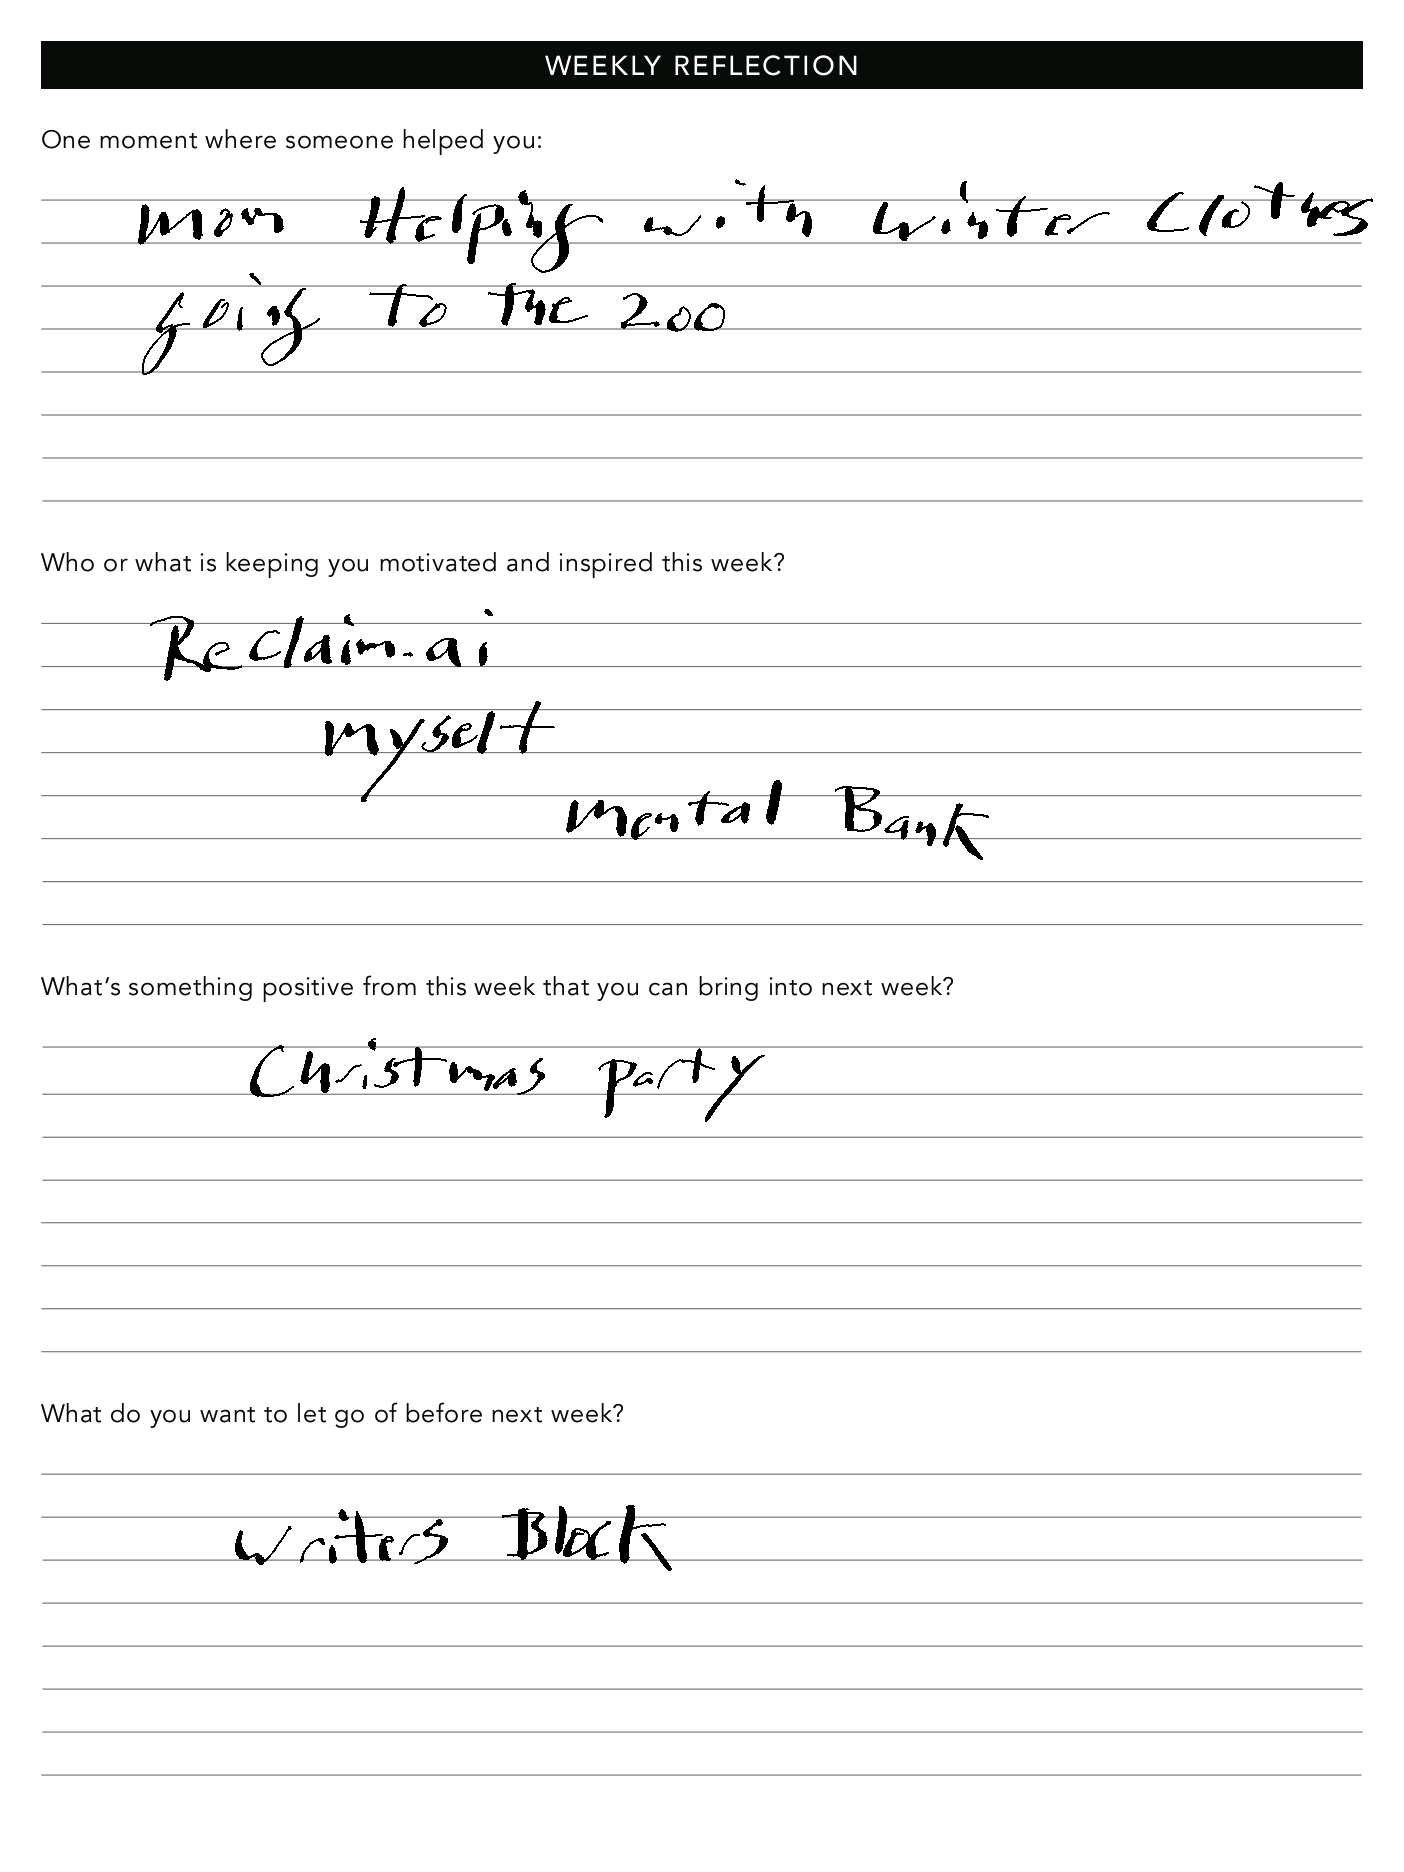 WEEKLY REFLECTION
One moment where someone helped you:
Mom Helping with winter Clothes
going to the zoo
Who or what is keeping you motivated and inspired this week?
Reclaim.ai
myself
Mental Bank
What's something positive from this week that you can bring into next week?
Christmas party
What do you want to let go of before next week?
writers Block